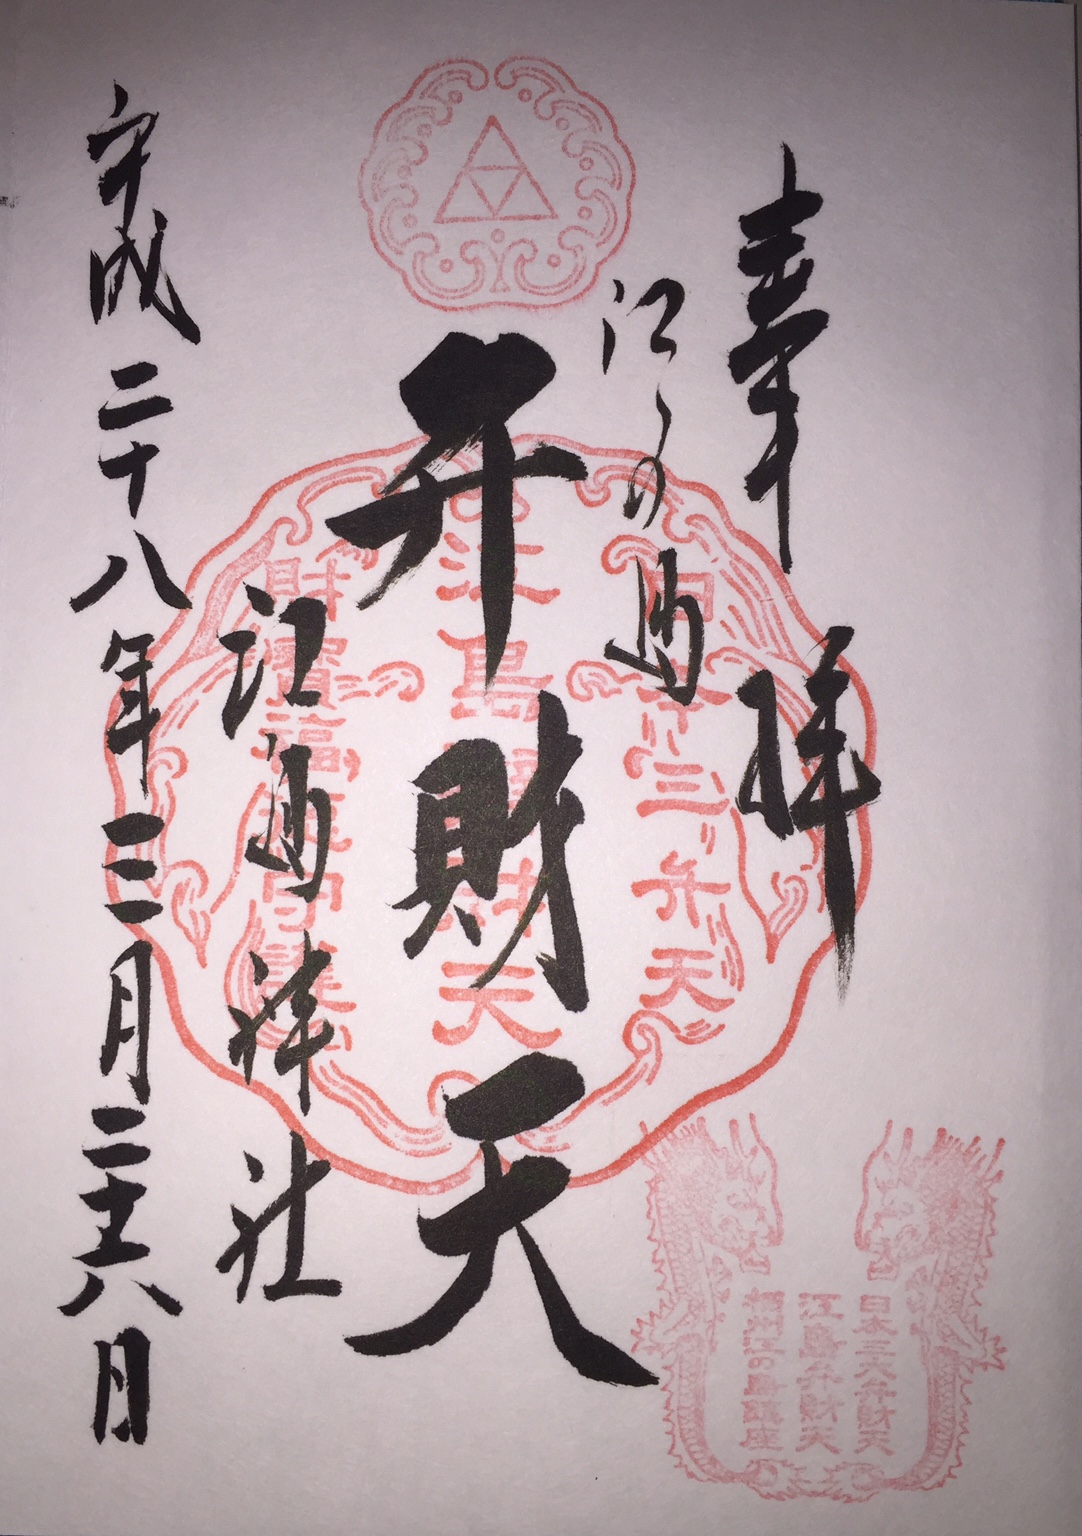 奉拝
江の島
弁財天
江島神社
平成二十八年三月二十六日
財寶福
守護
日本三大弁財天
江島弁財天
相州江の島鎮座